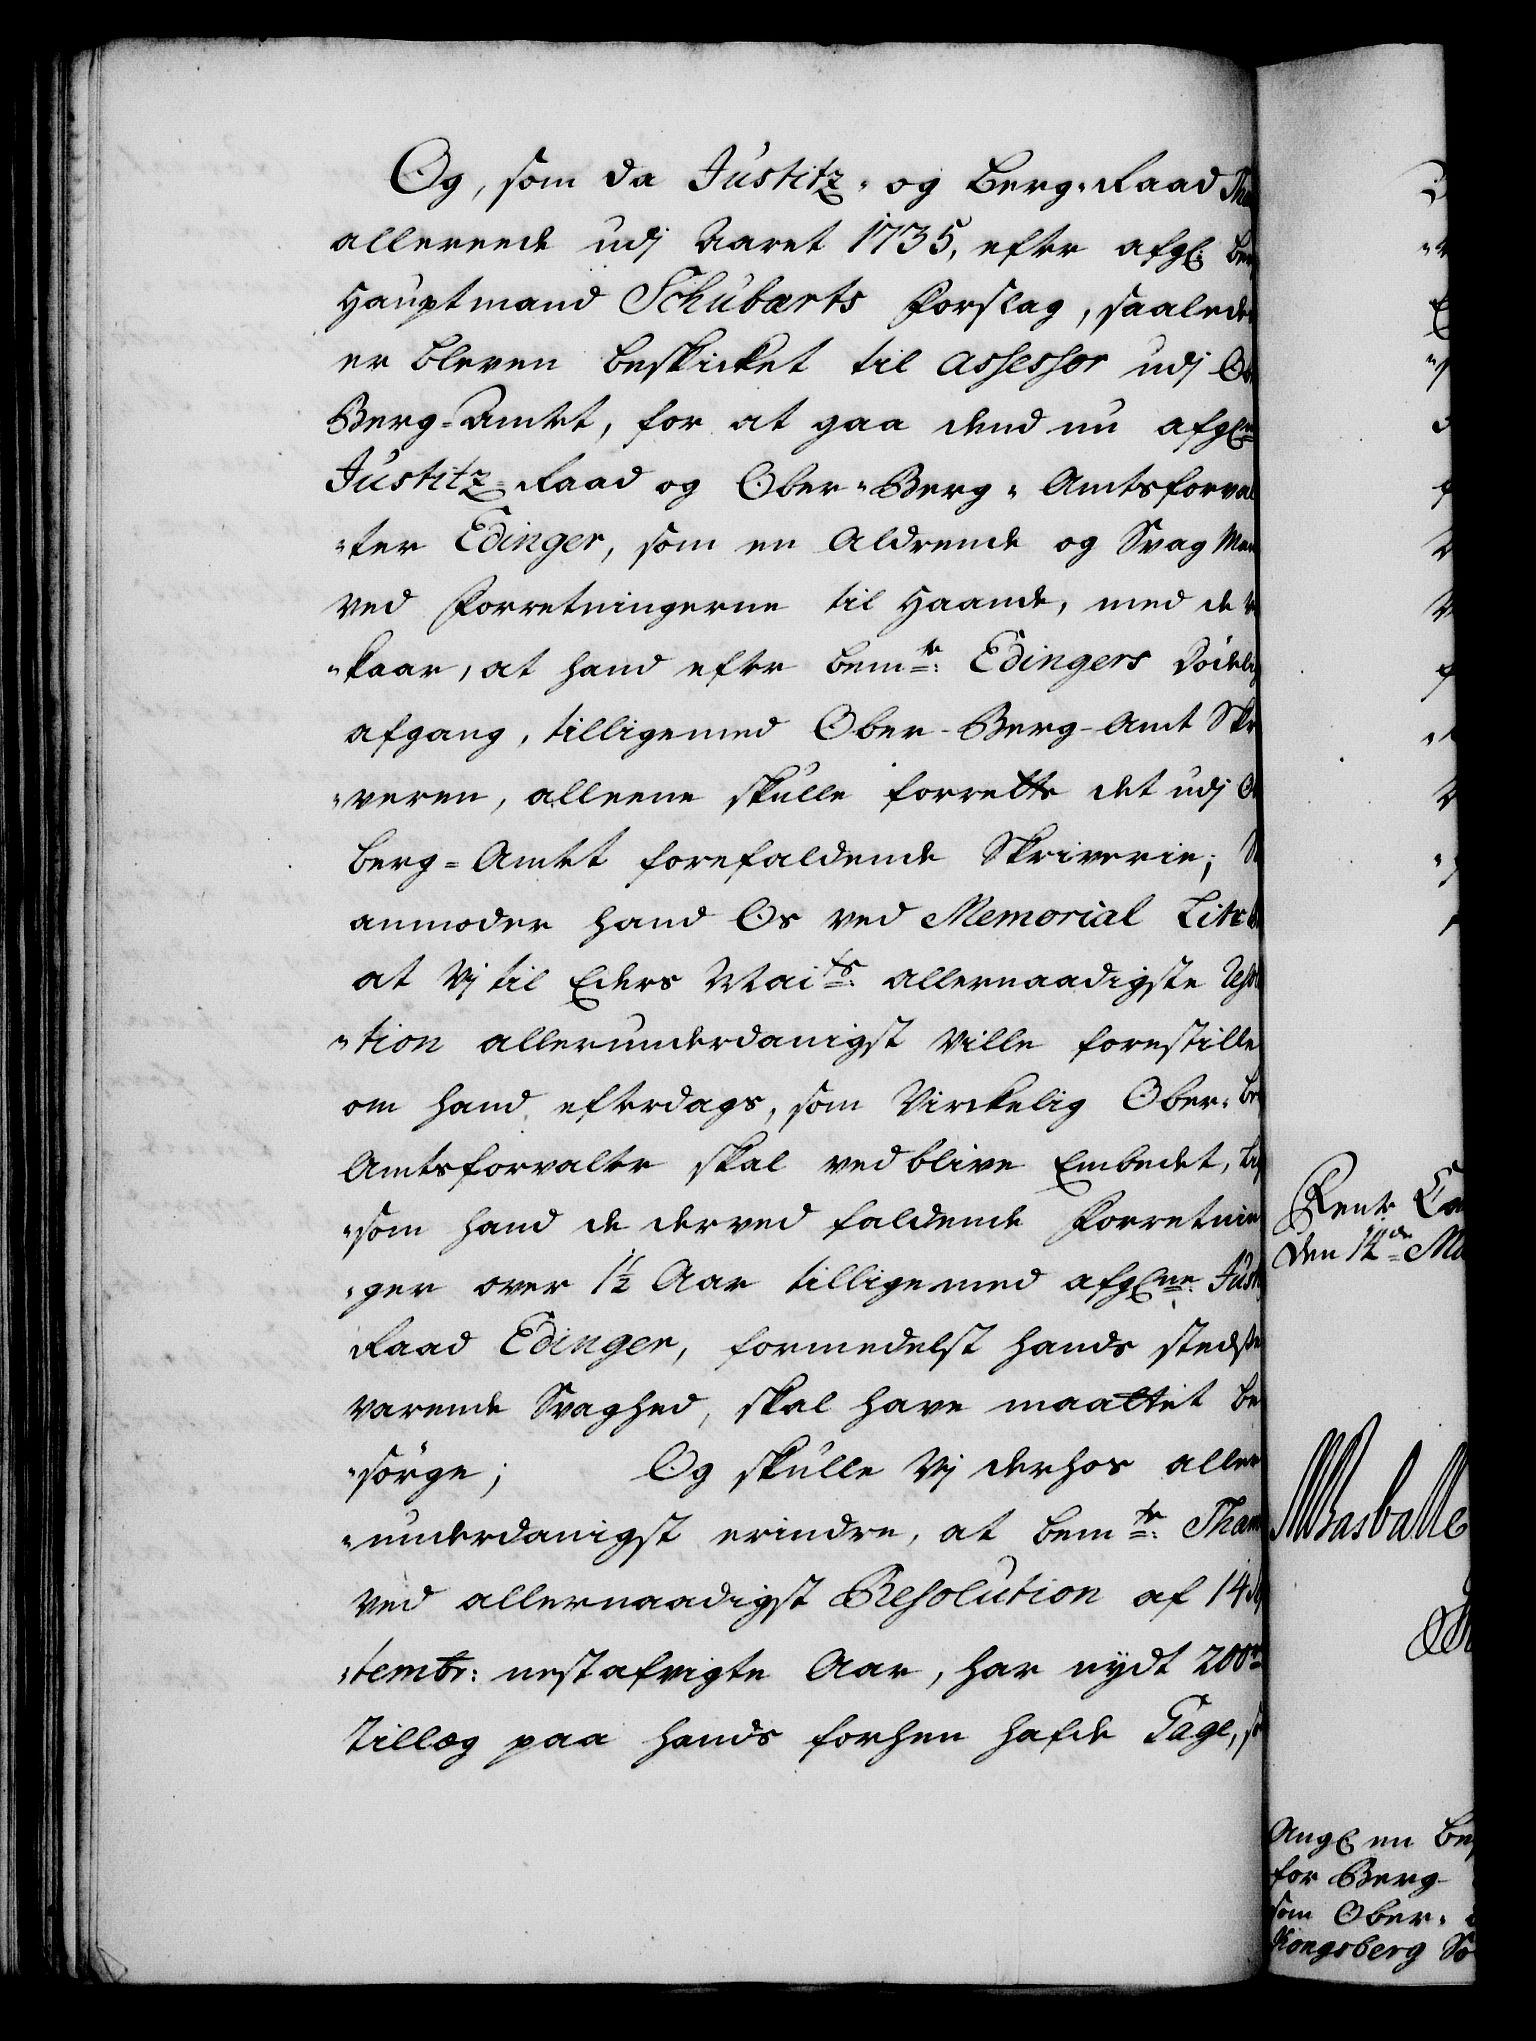 Og, som da Justitz- og Berg-Raad
allereede udj Aaret 1735, efter afgl:
Hauptmand Schubarts Forslag, saaledes
er bleven beskicket til Assessor udj
Berg-Amtet, for at gaa dend nu afgl:ne
Justitz-Raad og Ober-Berg-Amtsforval
-ter Edinger, som en Aldrende og Svag
ved Forretningerne til Haande, med de
-kaar, at hand efter bem:te Edingers dödelig
afgang, tilligemed Ober-Berg-Amt Skri
-veren, alleene skulle forrette det udj
Berg-Amtet forefaldende Skriverie;
anmoder hand Os ved Memorial Litr:
at Vj til Eders Mai:ts allernaadigste Resolu
-tion allerunderdanigst Ville forestille
om hand efterdags, som Virckelig Ober-
Amtsforvalter skal vedblive Embedet,
-som hand de derved faldende Forretnin
-ger over 1½ Aar tilligemed afgl:ne
Raad Edinger, formedelst hands stedse
varende Svaghed, skal have maattet be
-sörge; Og skulle Vj derhos aller
-underdanigst erindre, at bem:te Tham
ved allernaadigst Resolution af 14
-tembr: nestafvigte Aar, har nydt 200
Tillæg paa hands forhen hafde Gage,
Rente
den 14de
Angl: en
for Berg-
som Ober-
Kongsberg